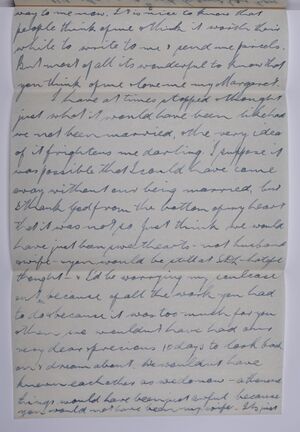 way to me now. It is nice to know that
people think of me & think it worth their
while to write to me & send me parcels.
But most of all its wonderful to know that
you think of me & love me my Margaret.
I have at times stopped & thought
just what it would have been like had
we not been married, & the very idea
of it frightens me darling. I suppose it
was possible that I could have come
away without our being married, but
I thank God from the bottom of my heart
that it was not so. Just think we would
have just been sweethearts - not husband
& wife - you would be still at hateful
thought - & I'd be worrying my
out because of all the work you had
to do because it was too much for you
& then we wouldn't have had our
very dear & precious 10 days to look back
on & dream about. We wouldn't have
known each other as we do now - & the
things would have been just awful because
you would not have been my wife. It's just